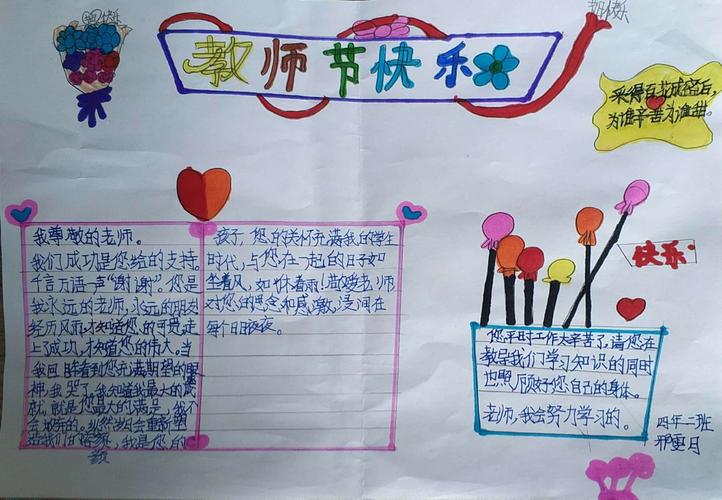 快乐
教师节快乐
采得百花成蜜后,
为谁辛苦为谁甜。
我尊敬的老师。
我们成功是您给的支持。
千言万语一声“谢谢”,您是
我永远的老师,永远的朋友
经历风雨,才知道您的可贵,走
上了成功,才知道您的伟大。当
我回眸看到您充满期望的眼
神,我哭了,我知道我最大的成
就,就是您最大的满足,我
会努力的。
给我们的,我是您的
孩子,您的关怀充满我的学生
时代,与您在一起的日子如
坐春风,如沐春雨!老师
对您的思念和感激,浸润在
每个日日夜夜。
快乐
您平时工作太辛苦了,请您在
教导我们学习知识的同时
也照顾好您自己的身体。
老师,我会努力学习的。
四年二班
邢雯月